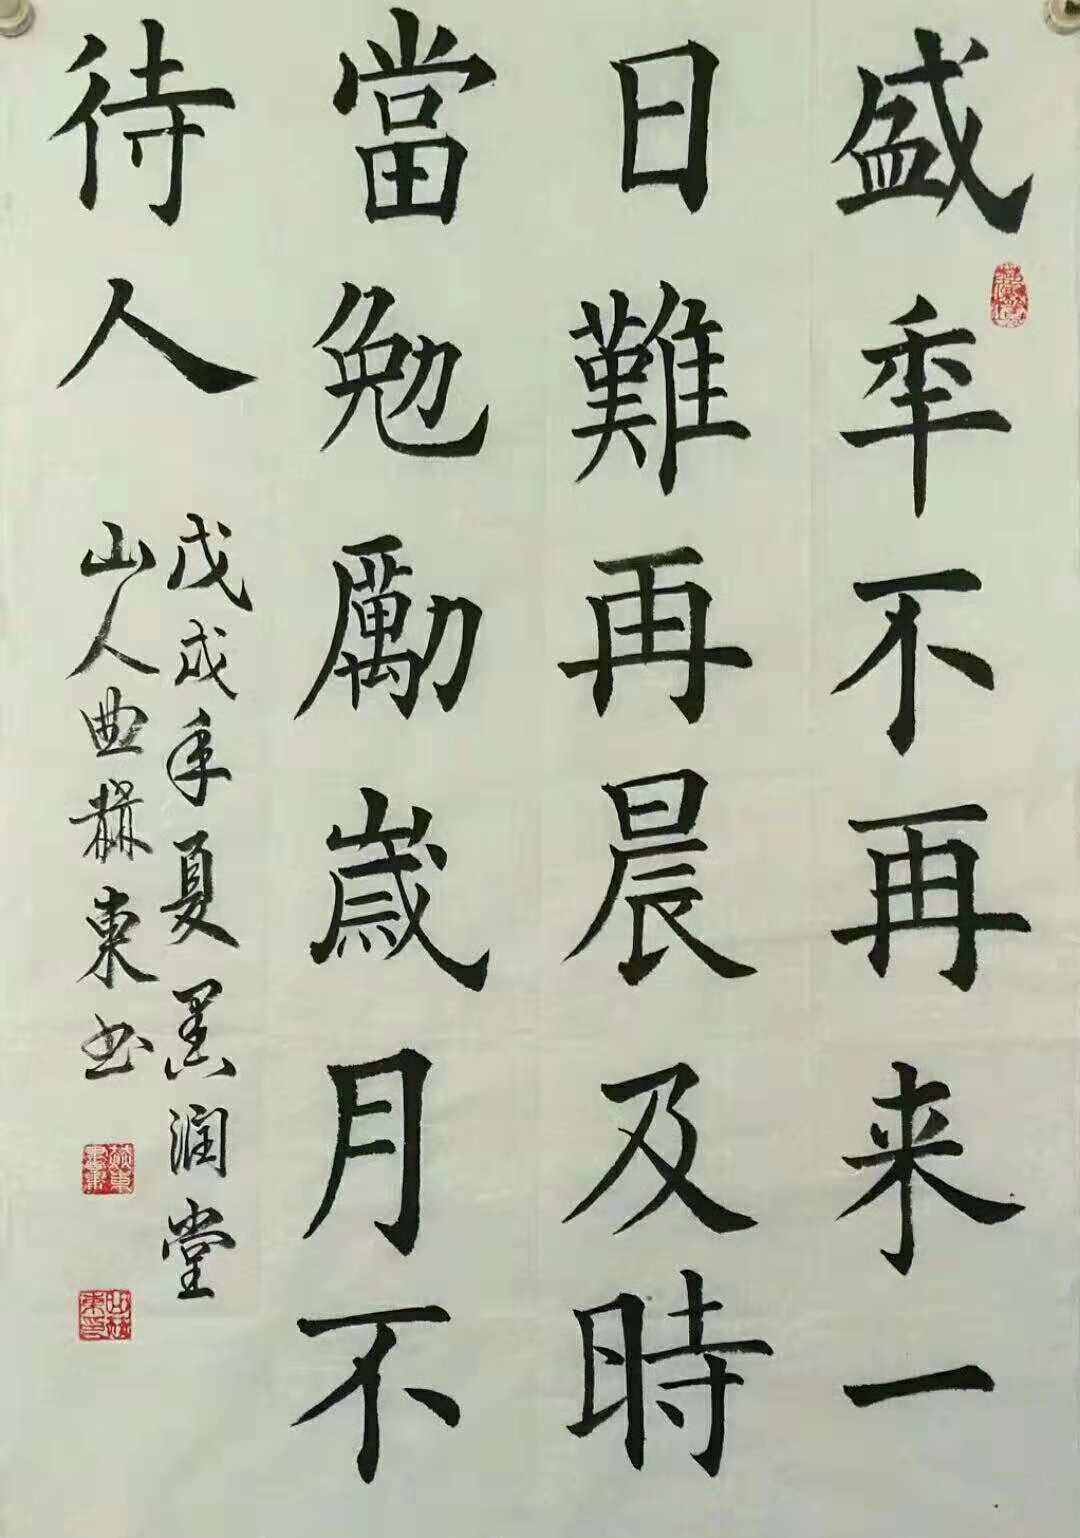 盛年不再来一
日難再晨及時
當勉勵歲月不
待人
戊戌年夏墨润堂
山人曲赫東书